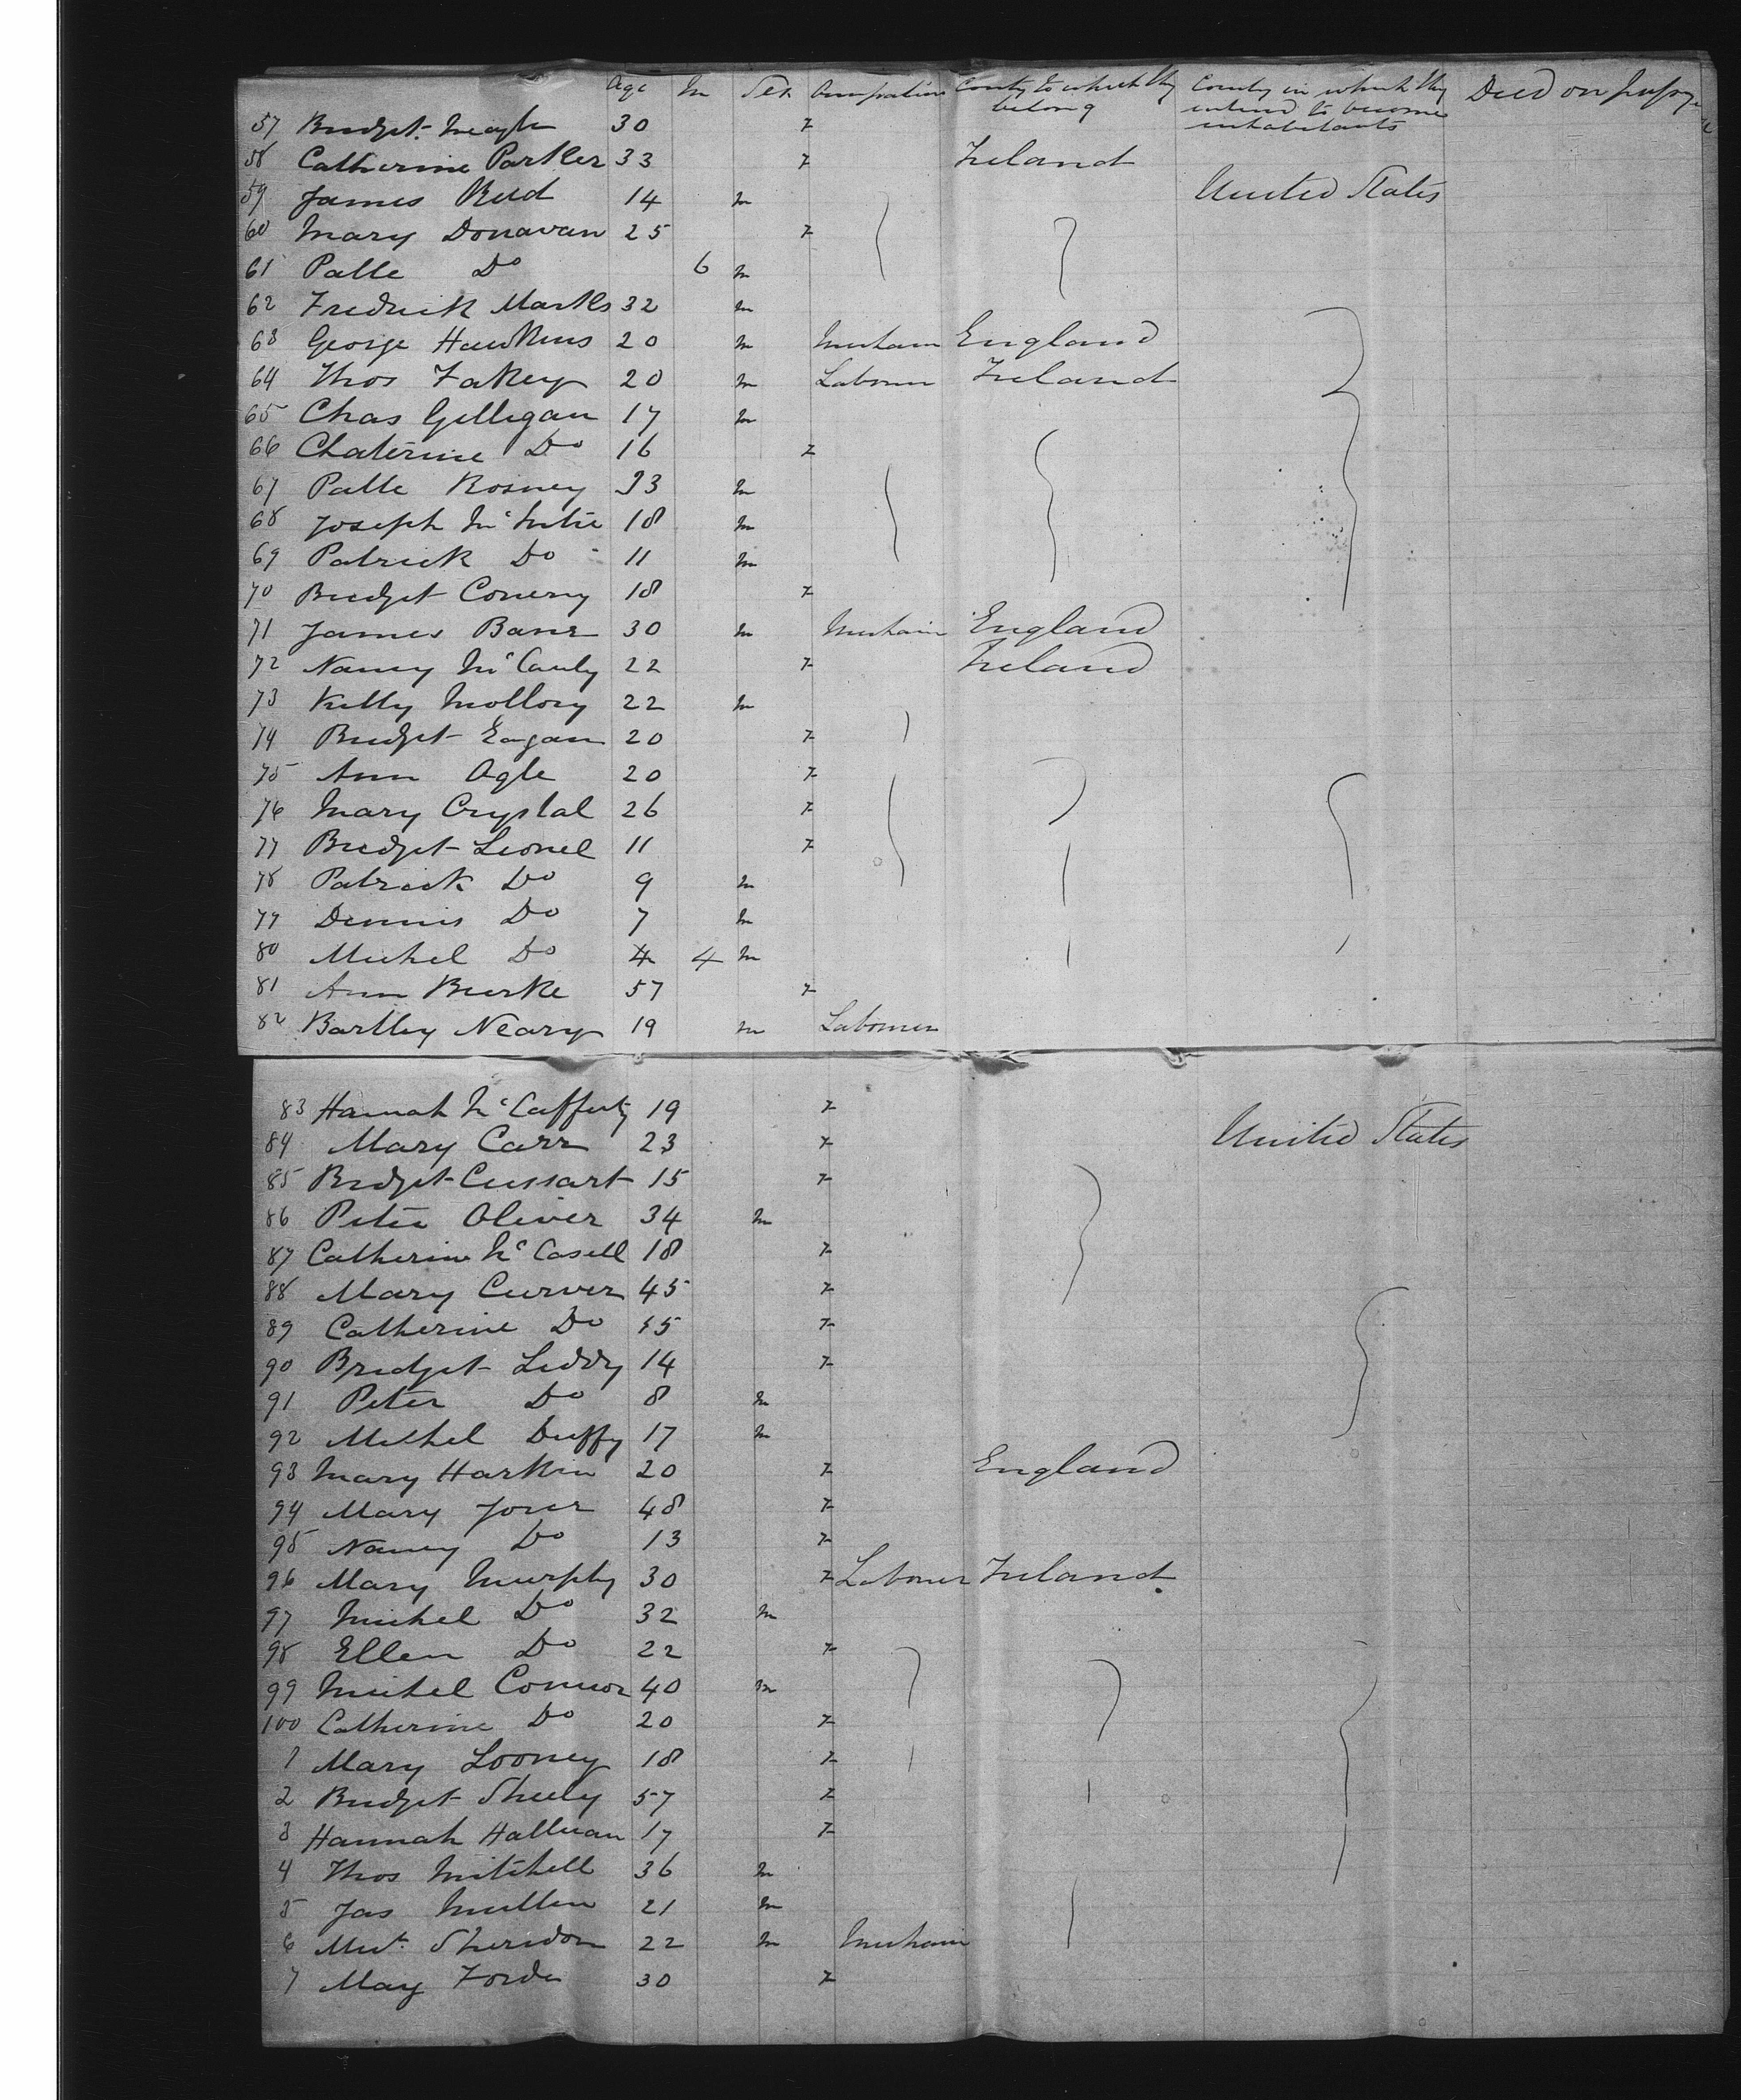 Age M Sex Occupation County to which they belong County in which they intend to become inhabitants Died on passage
57 Bridget Neagle 30 F
58 Catherine Parker 33 F Ireland
59 James Reid 14 m United States
60 Mary Donavan 25 F
61 Patk Do 6 m
62 Fredrick Marks 32 m
63 George Hawkins 20 m Mechanic England
64 Thos Fakey 20 m Labourer Ireland
65 Chas Gilligan 17 m
66 Chaterine Do 16 F
67 Patk Rosney 33 m
68 Joseph McIntire 18 m
69 Patrick Do 11 m
70 Bridget Conery 18 F
71 James Bane 30 m Mechanic England
72 Nancy McCauly 22 F Ireland
73 Kitty Mollory 22 m
74 Bridget Eagan 20 F
75 Ann Ogle 20 F
76 Mary Crystal 26 F
77 Bridget Leonel 11 F
78 Patrick Do 9 m
79 Dennis Do 7 m
80 Michel Do 4 4 m
81 Ann Burke 57 F
82 Bartley Neary 19 m Labourer
83 Hannah McCafferty 19 F
84 Mary Carr 23 F United States
85 Bridget Cussart 15 F
86 Peter Oliver 34 m
87 Catherine McCasell 18 F
88 Mary Curver 45 F
89 Catherine Do 15 F
90 Bridget Liddy 14 F
91 Peter Do 8 m
92 Michel Duffy 17 m
93 Mary Harkin 20 F England
94 Mary Joner 48 F
95 Nancy Do 13 F
96 Mary Murphy 30 F Labourer Ireland
97 Michel Do 32 m
98 Ellen Do 22 F
99 Michel Connor 40 m
100 Catherine Do 20 F
1 Mary Looney 18 F
2 Bridget Sheely 57 F
3 Hannah Hallinan 17 F
4 Thos Mitchell 36 m
5 Jas Mullen 21 m
6 Mic. Sheridon 22 m Mechanic
7 May Forde 30 F